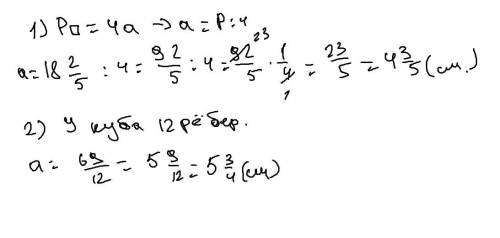 1) P□ = 4a → a = P:4
a = 18 2/5 : 4 = 92/5 : 4 = 92/5 · 1/4 = 23/5 = 4 3/5 (см.)
23
1
2) У куба 12 рёбер.
a = 69/12 = 5 9/12 = 5 3/4 (см)